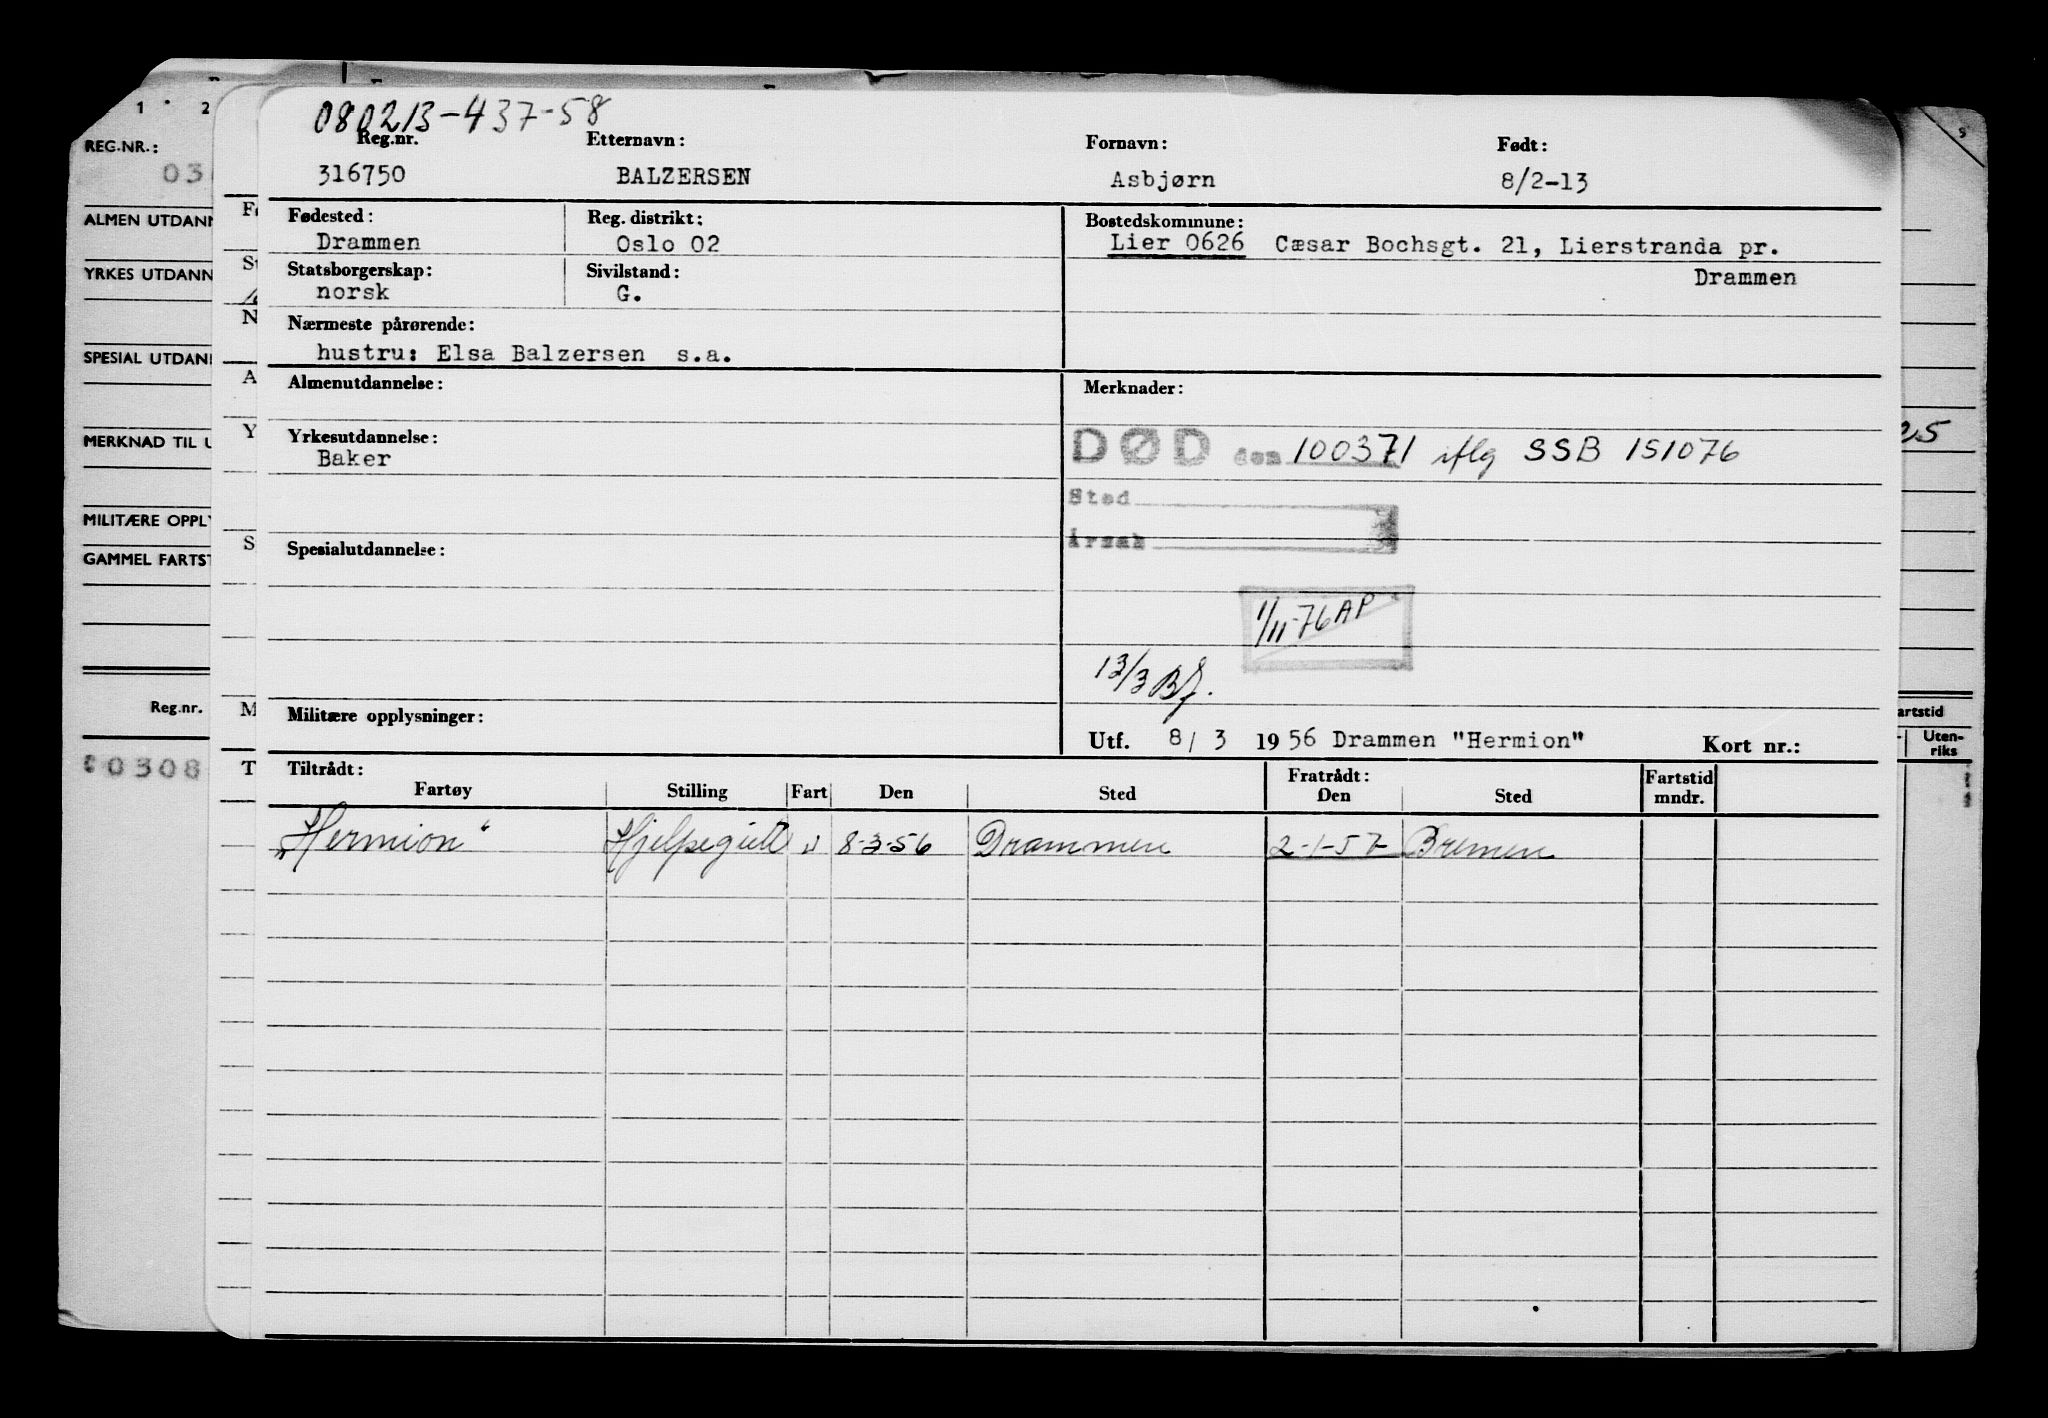 080213-437-58
Reg.nr. Etternavn: Fornavn: Født:
316750 BALZERSEN Asbjørn 8/2-13
Fødested: Reg. distrikt: Bostedskommune:
Drammen Oslo 02 Lier 0626 Cæsar Bochsgt. 21, Lierstranda pr.
Drammen
Statsborgerskap: Sivilstand:
norsk G.
Nærmeste pårørende:
hustru: Elsa Balzersen s.a.
Almenutdannelse: Merknader:
Yrkesutdannelse:
Baker
DØD den 100371 iflg SSB 151076
Sted
Årsak
Spesialutdannelse:
1/11-76 AP
13/3 Bf.
Militære opplysninger:
Utf. 8/ 3 1956 Drammen "Hermion" Kort nr.:
Tiltrådt: Fratrådt: Fartstid
Fartøy Stilling Fart Den Sted Den Sted mndr.
"Hermion" 8-3-56 Drammen 2-1-57 Bremen
1 2
REG.NR.:
03
ALMEN UTDANN
YRKES UTDANN
SPESIAL UTDAN
MERKNAD TIL U
MILITÆRE OPPLY
GAMMEL FARTST
Reg.nr.
0308
N
A
Y
S
M
T
9
25
artstid
Uten-
riks